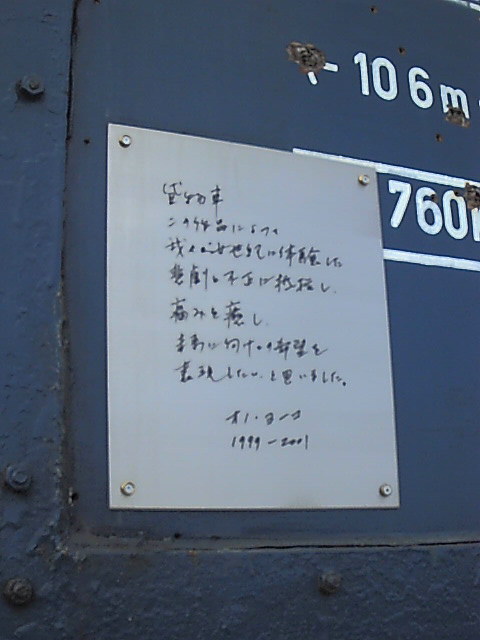 10 6m
760
貨物車
この作品によって
我々が今世紀に体験した
悲劇と不正に抵抗し、
痛みを癒し、
未来に向けての希望を
表現したい、と思いました。
オノ・ヨーコ
1999-2001